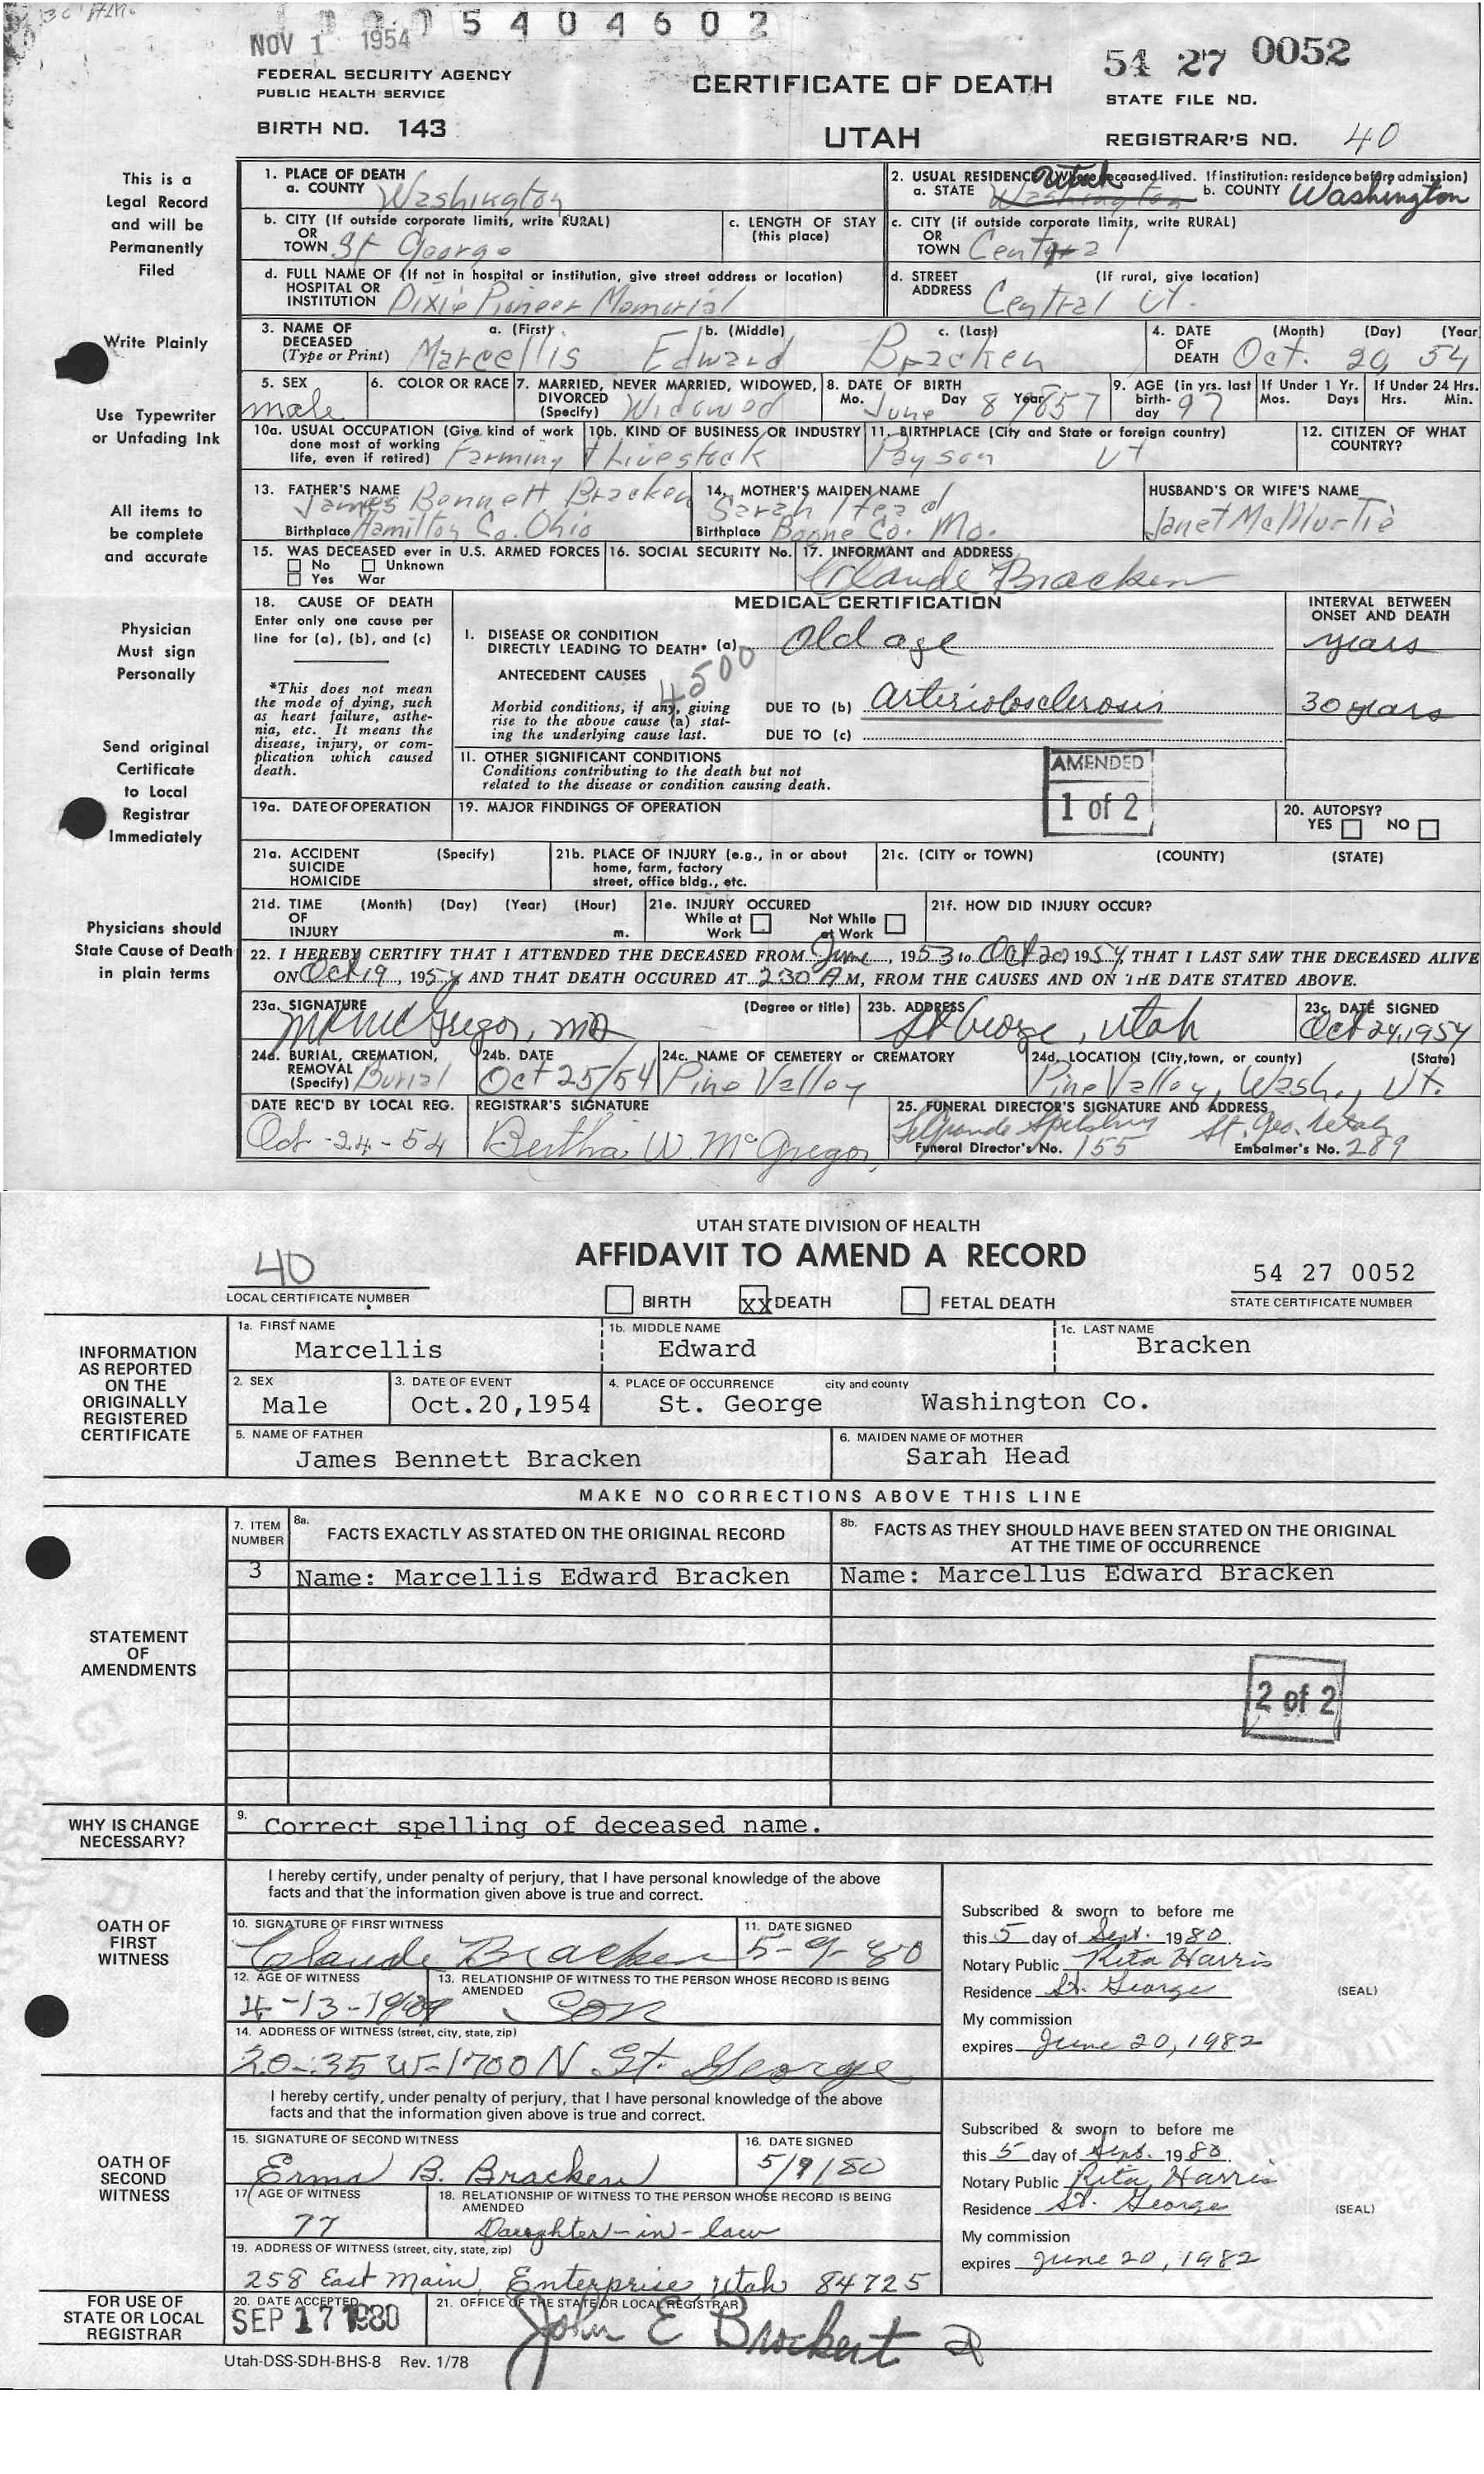 NOV 1 1954
5 4 0 4 6 0 2
54 27 0052
FEDERAL SECURITY AGENCY
PUBLIC HEALTH SERVICE
BIRTH NO. 143
CERTIFICATE OF DEATH
UTAH
STATE FILE NO.
REGISTRAR'S NO. 40
This is a
Legal Record
and will be
Permanently
Filed
Write Plainly
Use Typewriter
or Unfading Ink
All items to
be complete
and accurate
Physician
Must sign
Personally
Send original
Certificate
to Local
Registrar
Immediately
Physicians should
State Cause of Death
in plain terms
1. PLACE OF DEATH
a. COUNTY Washington
2. USUAL RESIDENCE (Where deceased lived. If institution: residence before admission)
a. STATE Washington Utah b. COUNTY Washington
b. CITY (If outside corporate limits, write RURAL)
OR
TOWN St George
c. LENGTH OF STAY
(this place)
c. CITY (if outside corporate limits, write RURAL)
OR
TOWN Central
d. FULL NAME OF (If not in hospital or institution, give street address or location)
HOSPITAL OR
INSTITUTION Dixie Pioneer Memorial
d. STREET (If rural, give location)
ADDRESS Central Ut.
3. NAME OF DECEASED (Type or Print)
a. (First) Marcellis b. (Middle) Edward c. (Last) Bracken
4. DATE OF DEATH (Month) (Day) (Year) Oct. 20, 54
5. SEX male
6. COLOR OR RACE
7. MARRIED, NEVER MARRIED, WIDOWED, DIVORCED (Specify) Widowed
8. DATE OF BIRTH Mo. Day Year June 8 1857
9. AGE (in yrs. last birth-day 97
If Under 1 Yr. Mos. Days
If Under 24 Hrs. Hrs. Min.
10a. USUAL OCCUPATION (Give kind of work done most of working life, even if retired) Farming
10b. KIND OF BUSINESS OR INDUSTRY + Livestock
11. BIRTHPLACE (City and State or foreign country) Payson Ut
12. CITIZEN OF WHAT COUNTRY?
13. FATHER'S NAME James Bennett Bracken
Birthplace Hamilton Co. Ohio
14. MOTHER'S MAIDEN NAME Sarah Head
Birthplace Boone Co. Mo.
HUSBAND'S OR WIFE'S NAME
Janet McMurtie
15. WAS DECEASED ever in U.S. ARMED FORCES
No Unknown
Yes War
16. SOCIAL SECURITY No.
17. INFORMANT and ADDRESS
Claude Bracken
18. CAUSE OF DEATH
Enter only one cause per
line for (a), (b), and (c)
*This does not mean
the mode of dying, such
as heart failure, asthe-
nia, etc. It means the
disease, injury, or com-
plication which caused
death.
MEDICAL CERTIFICATION
INTERVAL BETWEEN
ONSET AND DEATH
I. DISEASE OR CONDITION
DIRECTLY LEADING TO DEATH* (a) Old age years
4500
ANTECEDENT CAUSES
Morbid conditions, if any, giving
rise to the above cause (a) stat-
ing the underlying cause last.
DUE TO (b) Arteriolosclerosis 30 years
DUE TO (c)
II. OTHER SIGNIFICANT CONDITIONS
Conditions contributing to the death but not
related to the disease or condition causing death.
AMENDED
1 of 2
19a. DATE OF OPERATION
19. MAJOR FINDINGS OF OPERATION
20. AUTOPSY?
YES NO
21a. ACCIDENT (Specify)
SUICIDE
HOMICIDE
21b. PLACE OF INJURY (e.g., in or about
home, farm, factory
street, office bldg., etc.
21c. (CITY or TOWN) (COUNTY) (STATE)
21d. TIME (Month) (Day) (Year) (Hour)
OF
INJURY m.
21e. INJURY OCCURED
While at Work Not While at Work
21f. HOW DID INJURY OCCUR?
22. I HEREBY CERTIFY THAT I ATTENDED THE DECEASED FROM June, 1953 to Oct 20 1954, THAT I LAST SAW THE DECEASED ALIVE
ON Oct 19, 1954 AND THAT DEATH OCCURED AT 230 A M, FROM THE CAUSES AND ON THE DATE STATED ABOVE.
23a. SIGNATURE (Degree or title) McGregor, MD
23b. ADDRESS St George, Utah
23c. DATE SIGNED Oct 24, 1954
24a. BURIAL, CREMATION, REMOVAL (Specify) Burial
24b. DATE Oct 25/54
24c. NAME OF CEMETERY or CREMATORY Pine Valley
24d. LOCATION (City, town, or county) (State) Pine Valley, Wash., Ut.
DATE REC'D BY LOCAL REG. Oct-24-54
REGISTRAR'S SIGNATURE Bertha W. McGregor
25. FUNERAL DIRECTOR'S SIGNATURE AND ADDRESS St. Geo. Utah
Funeral Director's No. 155 Embalmer's No. 289
UTAH STATE DIVISION OF HEALTH
AFFIDAVIT TO AMEND A RECORD
40
LOCAL CERTIFICATE NUMBER
BIRTH XX DEATH FETAL DEATH
54 27 0052
STATE CERTIFICATE NUMBER
INFORMATION
AS REPORTED
ON THE
ORIGINALLY
REGISTERED
CERTIFICATE
1a. FIRST NAME Marcellis
1b. MIDDLE NAME Edward
1c. LAST NAME Bracken
2. SEX Male
3. DATE OF EVENT Oct.20,1954
4. PLACE OF OCCURRENCE city and county St. George Washington Co.
5. NAME OF FATHER James Bennett Bracken
6. MAIDEN NAME OF MOTHER Sarah Head
MAKE NO CORRECTIONS ABOVE THIS LINE
STATEMENT
OF
AMENDMENTS
7. ITEM NUMBER
8a. FACTS EXACTLY AS STATED ON THE ORIGINAL RECORD
8b. FACTS AS THEY SHOULD HAVE BEEN STATED ON THE ORIGINAL
AT THE TIME OF OCCURRENCE
3 Name: Marcellis Edward Bracken Name: Marcellus Edward Bracken
2 of 2
WHY IS CHANGE
NECESSARY?
9. Correct spelling of deceased name.
OATH OF
FIRST
WITNESS
I hereby certify, under penalty of perjury, that I have personal knowledge of the above
facts and that the information given above is true and correct.
10. SIGNATURE OF FIRST WITNESS Claude Bracken
11. DATE SIGNED 5-9-80
12. AGE OF WITNESS 4-13-19
13. RELATIONSHIP OF WITNESS TO THE PERSON WHOSE RECORD IS BEING AMENDED Son
14. ADDRESS OF WITNESS (street, city, state, zip)
20-35 W-1700 N St. George
Subscribed & sworn to before me
this 5 day of Sept. 1980
Notary Public Rita Harris
Residence St. George (SEAL)
My commission
expires June 20, 1982
OATH OF
SECOND
WITNESS
I hereby certify, under penalty of perjury, that I have personal knowledge of the above
facts and that the information given above is true and correct.
15. SIGNATURE OF SECOND WITNESS Erma B. Bracken
16. DATE SIGNED 5/9/80
17. AGE OF WITNESS 77
18. RELATIONSHIP OF WITNESS TO THE PERSON WHOSE RECORD IS BEING AMENDED Daughter-in-law
19. ADDRESS OF WITNESS (street, city, state, zip)
258 East Main, Enterprise, Utah 84725
Subscribed & sworn to before me
this 5 day of Sept. 1980
Notary Public Rita Harris
Residence St. George (SEAL)
My commission
expires June 20, 1982
FOR USE OF
STATE OR LOCAL
REGISTRAR
20. DATE ACCEPTED SEP 17 1980
21. OFFICE OF THE STATE OR LOCAL REGISTRAR
John E Brockert
Utah-DSS-SDH-BHS-8 Rev. 1/78